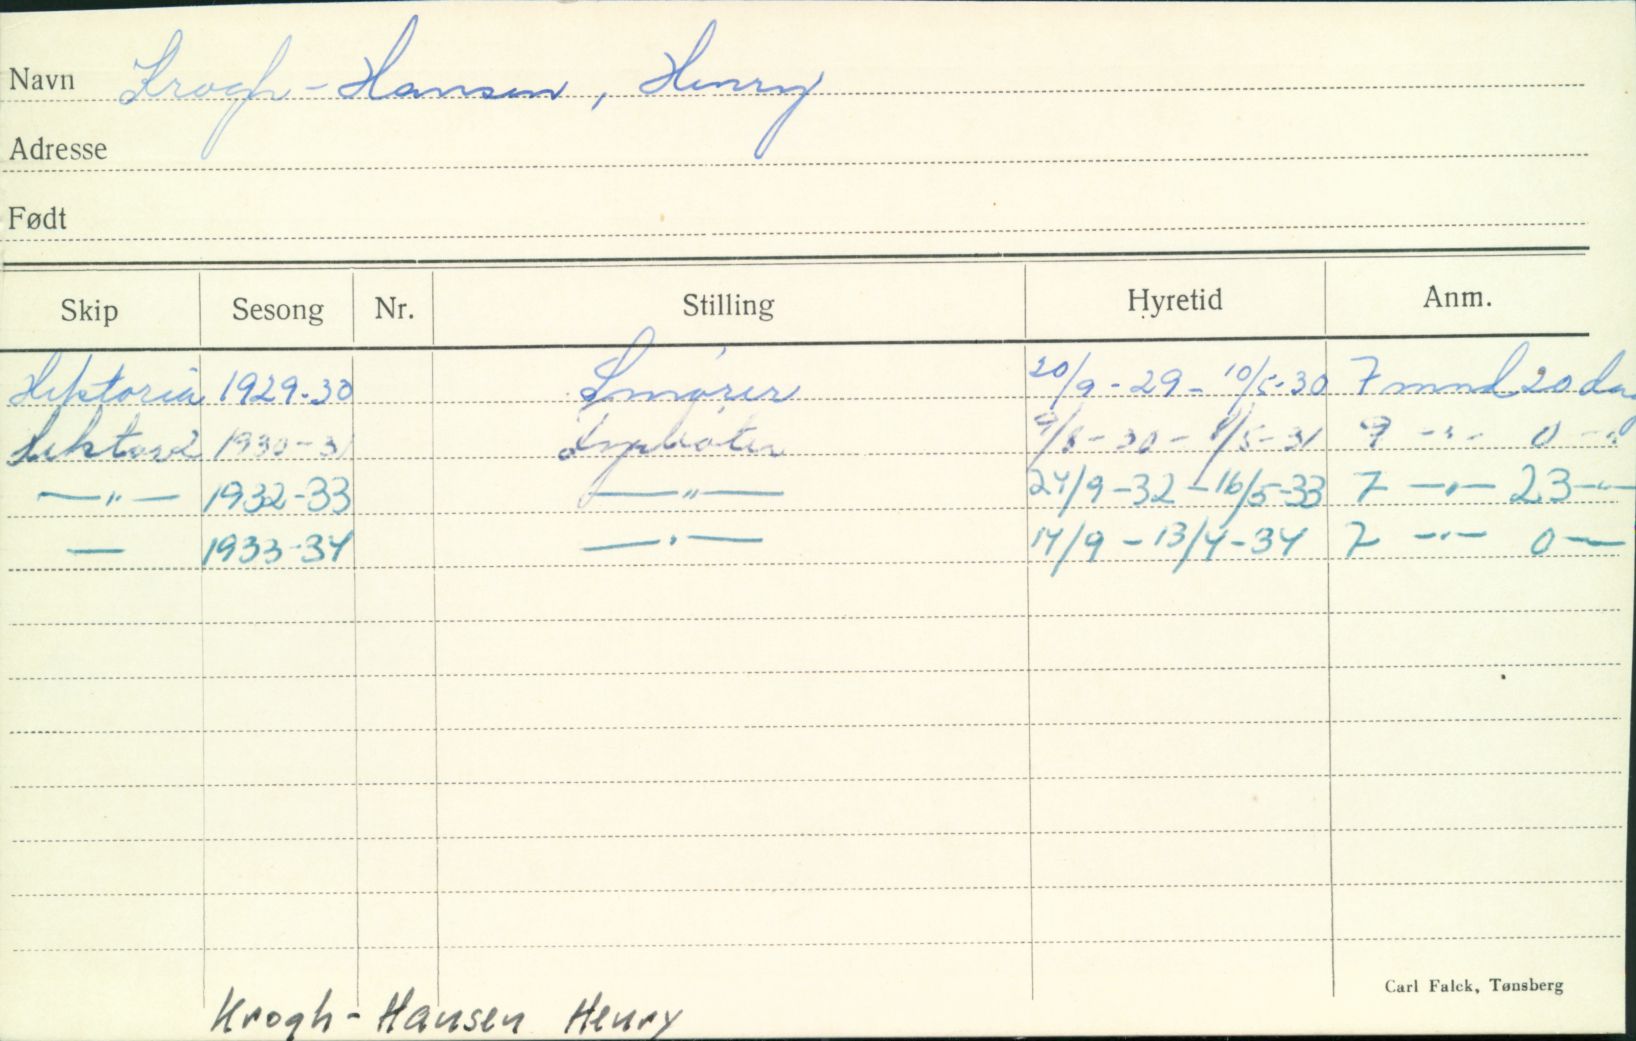 Navn Krogh-Hansen, Henry
Adresse
Født
Skip Sesong Nr. Stilling Hyretid Anm.
Hektoria 1929-30 Smører 20/9-29-10/5-30 7 mnd 20 dag
1930-31 9/8-30-8/5-31 9 -"- 0 -"-
—"— 1932-33 —"— 24/9-32-16/5-33 7 —"— 23 -"-
— 1933-34 —"— 14/9-13/4-34 7 -"- 0 —
Carl Falck, Tønsberg
Krogh-Hansen Henry